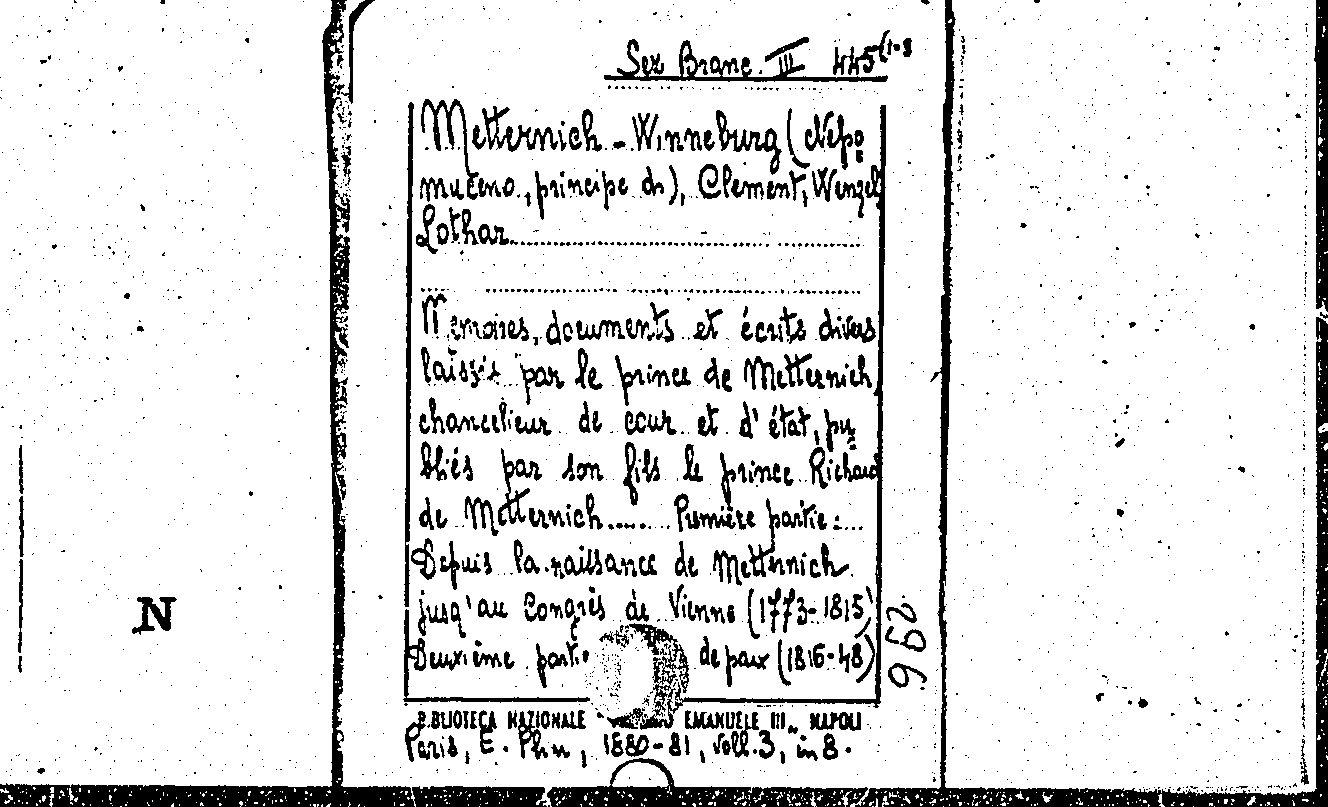 Sez Branc. III 445(1-3
Metternich - Winneburg (Nepo
muceno, principe di), Clement, Wenzel
Lothar
Memoires, documents et écrits divers
laissés par le prince de Metternich,
chancelieur de cour et d'état, pu
bliés par son fils le prince Richard
de Metternich...... Première partie:
Depuis la naissance de Metternich
jusq'au Congrès de Vienne (1773-1815)
Deuxième partie de paix (1816-48)
BIBLIOTECA NAZIONALE EMANUELE III„ NAPOLI
Paris, E. Plon, 1880-81, voll. 3, in 8.
N
296